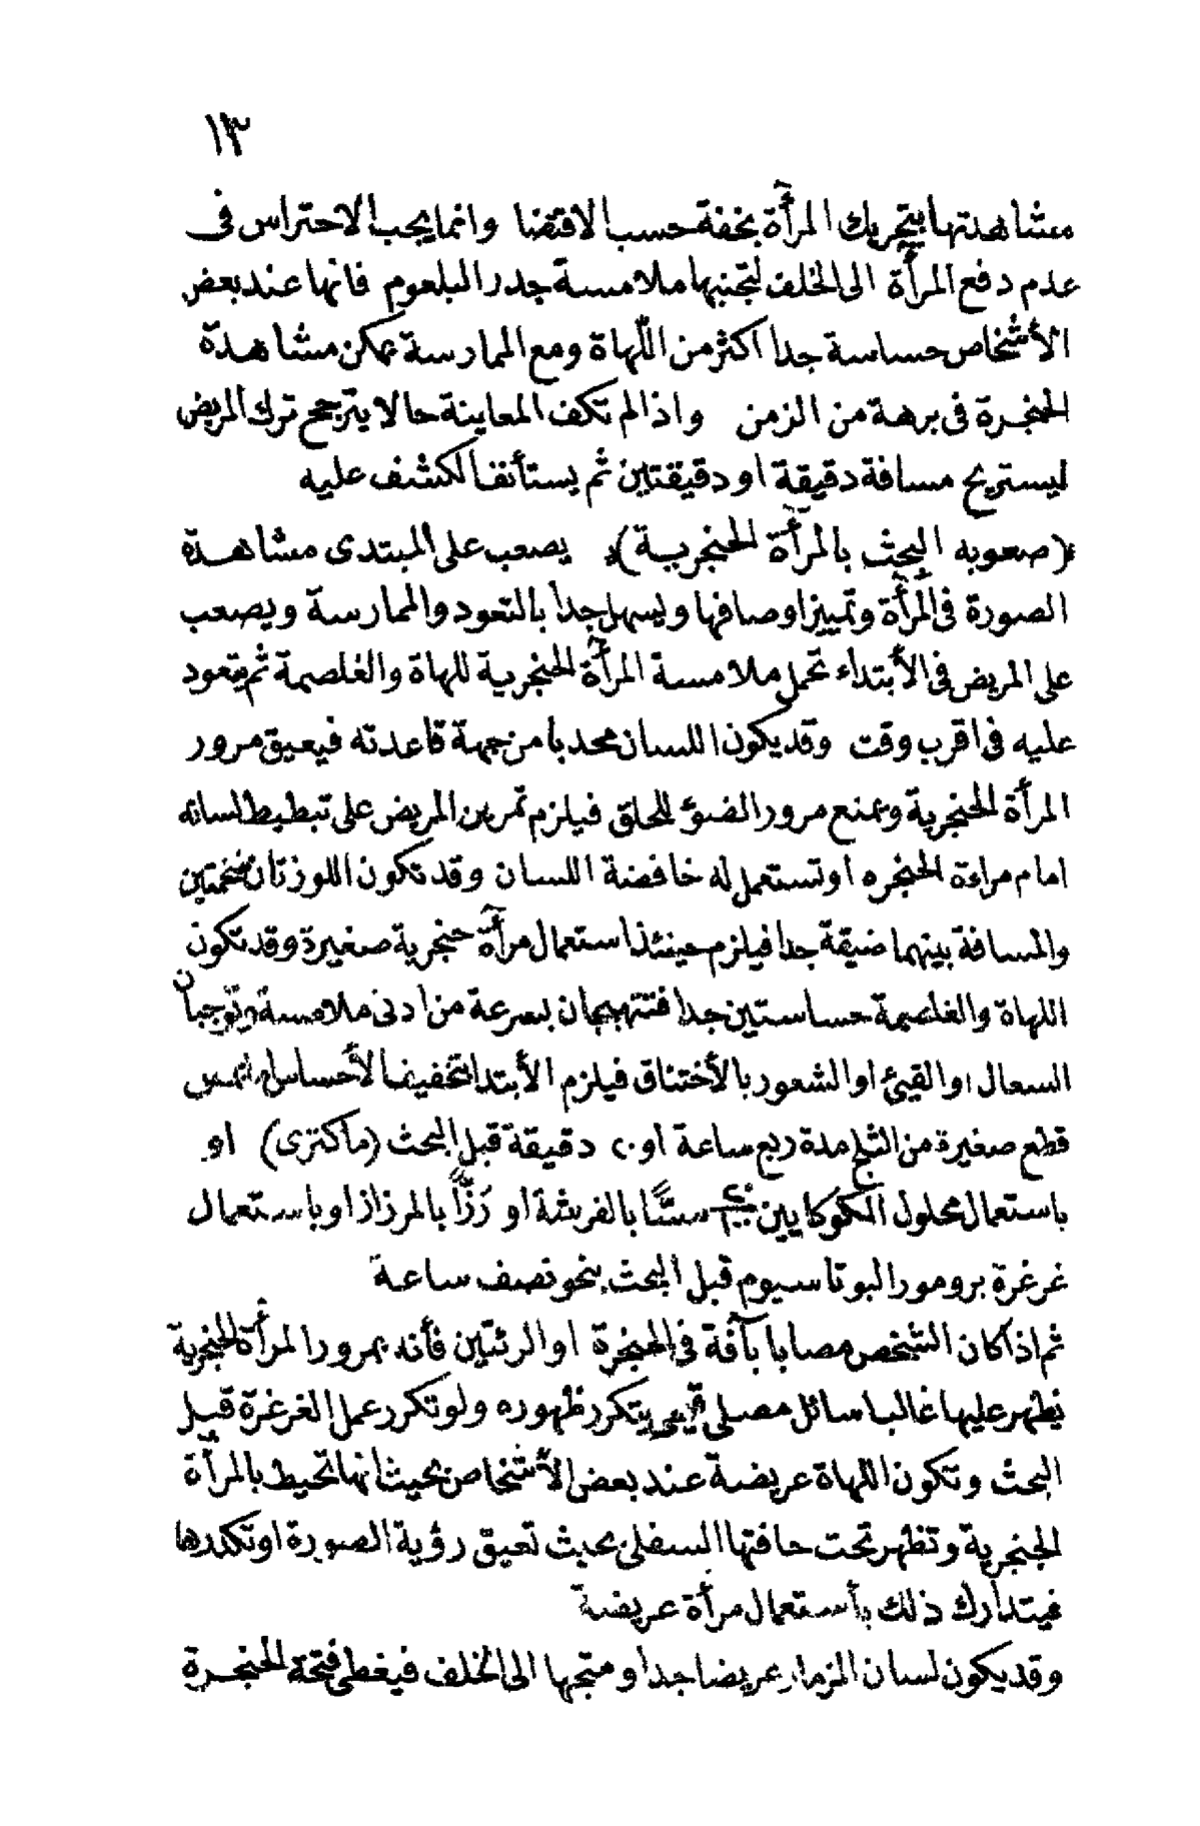 ١٣
مشاهدتها بتحريك المرآة بخفة حسب الاقتضا وانما يجب الاحتراس فى
عدم دفع المرآة الى الخلف لتجنبها ملامسة جدر البلعوم فانها عند بعض
الأشخاص حساسة جدا اكثر من اللّهاة ومع الممارسة يمكن مشاهدة
الحنجرة فى برهة من الزمن واذا لم تكف المعاينة حالا يترجح ترك المريض
ليستريح مسافة دقيقة او دقيقتين ثم يستأنف الكشف عليه
(صعوبه البحث بالمرآة الحنجرية) يصعب على المبتدى مشاهدة
الصورة فى المرآة وتمييز اوصافها ويسهل جدا بالتعود والممارسة ويصعب
على المريض فى الأبتداء تحمل ملامسة المرآة الحنجرية للهاة والغلصمة ثم يتعود
عليه فى اقرب وقت وقد يكون اللسان محدبا من جهة قاعدته فيعيق مرور
المرأة الحنجرية ويمنع مرور الضوؤ للحلق فيلزم تمرين المريض على تبطيط لسانه
امام مراءة الحنجره او تستعمل له خافضة اللسان وقد تكون اللوزتان ضخمتين
والمسافة بينهما ضيقة جدا فيلزم حينئذ استعمال مرآة حنجرية صغيرة وقد تكون
اللهاة والغلصمة حساستين جدا فتتهيجان بسرعة من ادنى ملامسة وتوجبان
السعال او القيئ او الشعور بالأختناق فيلزم الأبتدا بتخفيف الأحساس بلمس
قطع صغيرة من الثلج مدة ربع ساعة او ٢٠ دقيقة قبل البحث (ماكنزى) او
باستعمال محلول الكوكايين مسًّا بالفرشة او رَزًّا بالمرزاز او باستعمال
غرغرة برومور البوتاسيوم قبل البحث بنحو نصف ساعة
ثم اذا كان الشخص مصابا بآفة فى الحنجرة او الرئتين فأنه بمرور المرأة الحنجرية
يظهر عليها غالبا سائل مصلى قيحى يتكرر ظهوره ولو تكرر عمل الغرغرة قبل
البحث وتكون اللهاة عريضة عند بعض الأشخاص بحيث انها تحيط بالمرآة
الحنجرية وتظهر تحت حافتها السفلى بحيث تعيق رؤية الصورة او تكدرها
فيتدارك ذلك بأستعمال مرأة عريضة
وقد يكون لسان المزمار عريضا جدا ومتجها الى الخلف فيغطى فتحة الحنجرة